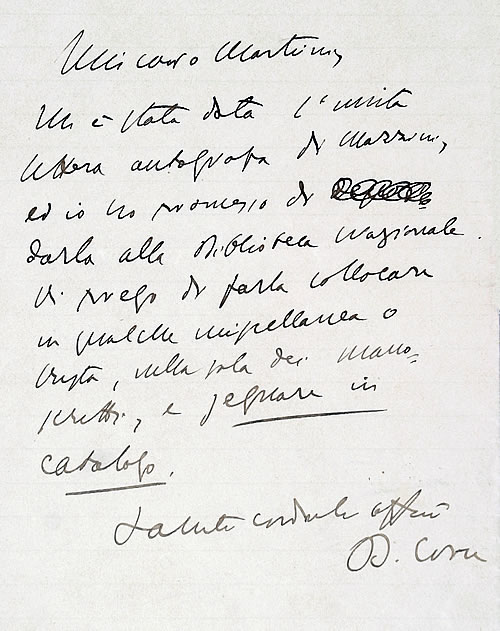 Mio caro Martini,
Mi è stata data l'unita
lettera autografa di Mazzini,
ed io ho promesso di
darla alla Biblioteca Nazionale.
Vi prego di farla collocare
in qualche miscellanea o
busta, nella sala dei mano-
scritti, e segnare in
catalogo.
Saluti cordiali
B. Croce